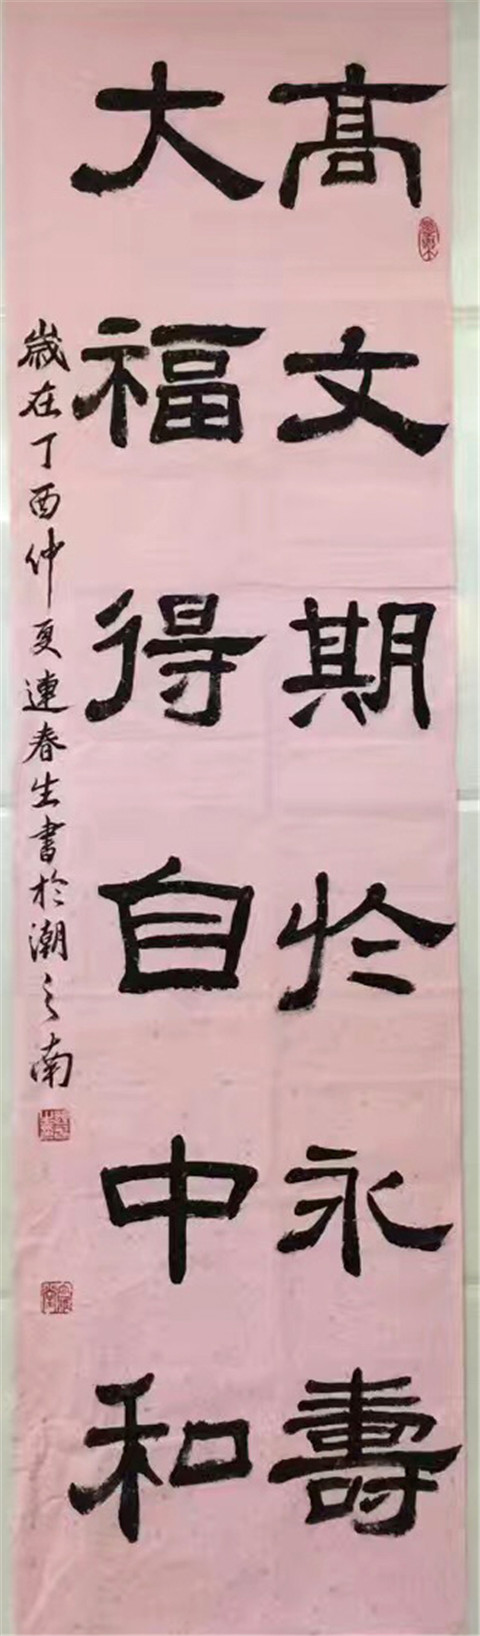 高文期於永壽
大福得自中和
歲在丁酉仲夏連春生書於潮之南